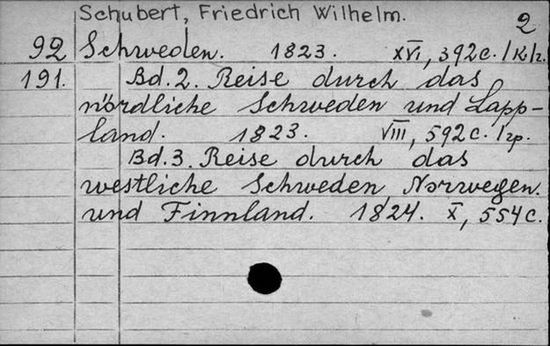 Schubert, Friedrich Wilhelm.
2
92 Schweden. 1823. XVI, 392c. /K/2.
191. Bd. 2. Reise durch das
nördliche Schweden und Lapp-
land. 1823. VIII, 592c. /2p.
Bd. 3. Reise durch das
westliche Schweden Norwegen.
und Finnland. 1824. X, 554c.